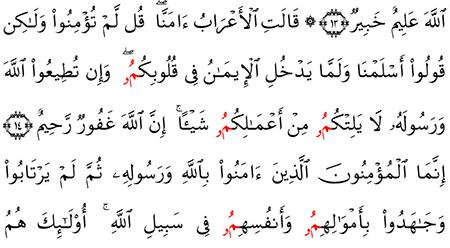 اللَّهَ عَلِيمٌ خَبِيرٌ ﴿١٣﴾ ۞ قَالَتِ الْأَعْرَابُ ءَامَنَّا ۖ قُل لَّمْ تُؤْمِنُوا۟ وَلَـٰكِن
قُولُوٓا۟ أَسْلَمْنَا وَلَمَّا يَدْخُلِ الْإِيمَـٰنُ فِى قُلُوبِكُمُۥ ۖ وَإِن تُطِيعُوا۟ اللَّهَ
وَرَسُولَهُۥ لَا يَلِتْكُمُۥ مِنْ أَعْمَـٰلِكُمُۥ شَيْـًٔا ۚ إِنَّ اللَّهَ غَفُورٌ رَّحِيمٌ ﴿١٤﴾
إِنَّمَا الْمُؤْمِنُونَ الَّذِينَ ءَامَنُوا۟ بِاللَّهِ وَرَسُولِهِۦ ثُمَّ لَمْ يَرْتَابُوا۟
وَجَـٰهَدُوا۟ بِأَمْوَٰلِهِمُۥ وَأَنفُسِهِمُۥ فِى سَبِيلِ اللَّهِ ۚ أُو۟لَـٰٓئِكَ هُمُ